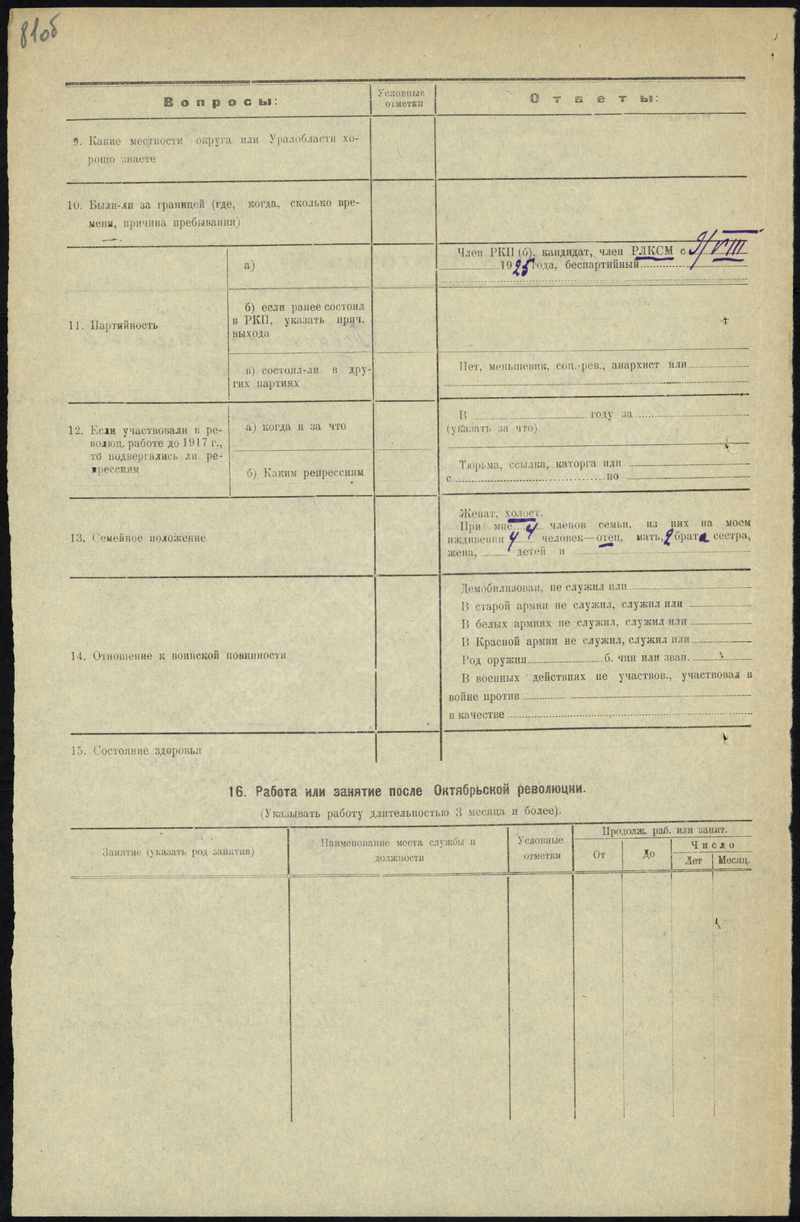 81об
Вопросы:
Условные
отметки
Ответы:
9. Какие местности округа или Уралобласти хо-
рошо знаете
10. Были-ли за границей (где, когда, сколько вре-
мени, причина пребывания)
11. Партийность
а)
Член РКП (б), кандидат, член РЛКСМ с 9/VIII
1925 года, беспартийный
б) если ранее состоял
в РКП, указать прич.
выхода
в) состоял-ли в дру-
гих партиях
Нет, меньшевик, соц.-рев., анархист или
12. Если участвовали в ре-
волюц. работе до 1917 г.,
то подвергались ли ре-
прессиям
а) когда и за что
В году за
(указать за что)
б) Каким репрессиям
Тюрьма, ссылка, каторга или
с по
13. Семейное положение
Женат, холост.
При мне 4 членов семьи, из них на моем
иждивении 4 человек—отец, мать, 2 брата, сестра,
жена, детей и
14. Отношение к воинской повинности
Демобилизован, не служил или
В старой армии не служил, служил или
В белых армиях не служил, служил или
В Красной армии не служил, служил или
Род оружия б. чин или зван.
В военных действиях не участвов., участвовал в
войне против
в качестве
15. Состояние здоровья
16. Работа или занятие после Октябрьской революции.
(Указывать работу длительностью 3 месяца и более).
Занятие (указать род занятия)
Наименование места службы и
должности
Условные
отметки
Продолж. раб. или занят.
От
До
Число
Лет
Месяц.